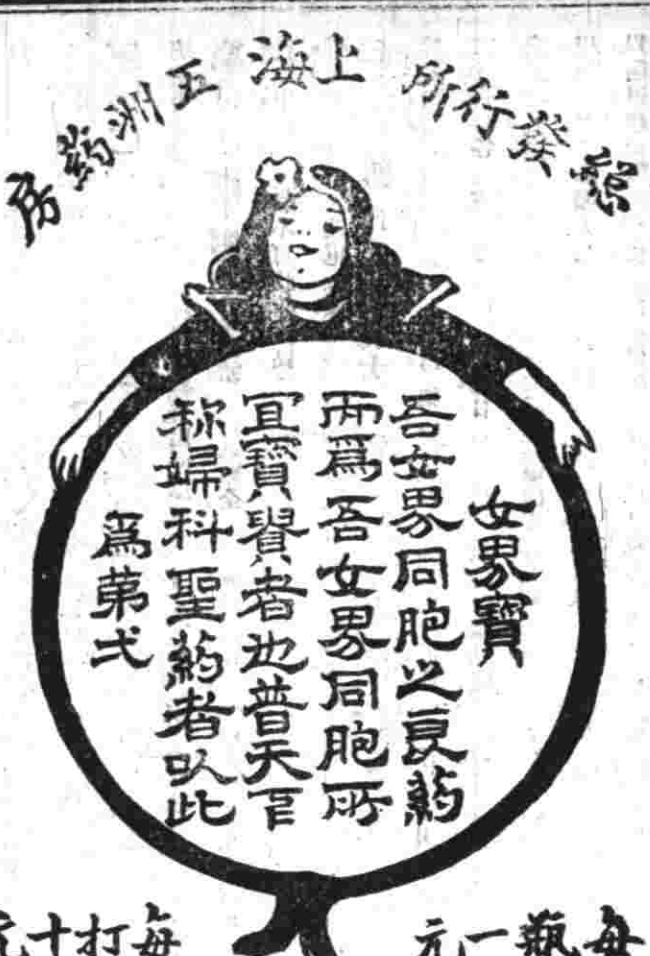 總發行所 上海 五洲葯房
女界寶
吾女界同胞之良葯
而爲吾女界同胞所
宜寶貴者也普天下
称婦科聖葯者以此
爲苐弌
每瓶一元
每打十元